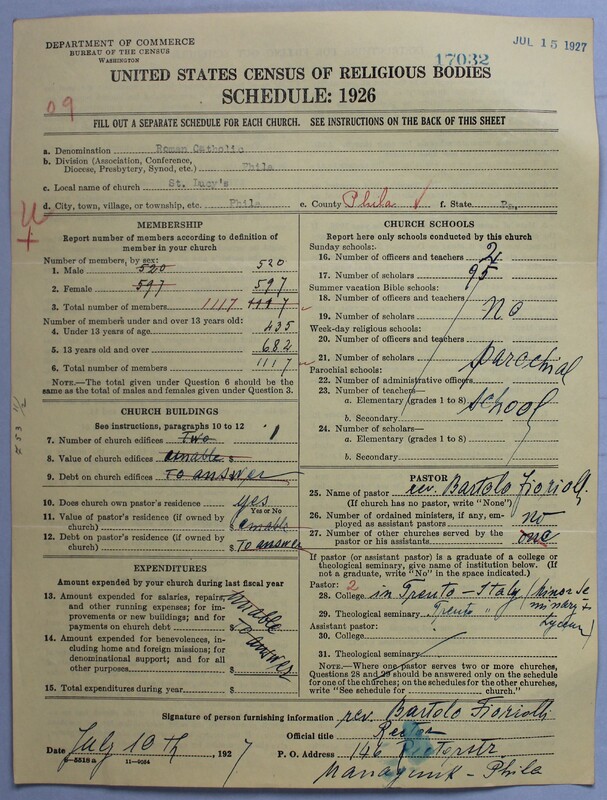 DEPARTMENT OF COMMERCE
BUREAU OF THE CENSUS
WASHINGTON
JUL 15 1927
17032
UNITED STATES CENSUS OF RELIGIOUS BODIES
SCHEDULE: 1926
09
FILL OUT A SEPARATE SCHEDULE FOR EACH CHURCH. SEE INSTRUCTIONS ON THE BACK OF THIS SHEET
a. Denomination Roman Catholic
b. Division (Association, Conference,
Diocese, Presbytery, Synod, etc.) Phila
c. Local name of church St. Lucy's
d. City, town, village, or township, etc. Phila e. County Phila f. State Pa.
MEMBERSHIP
Report number of members according to definition of
member in your church
Number of members, by sex:
1. Male 520 520
2. Female 597 597
3. Total number of members 1117 1117
Number of members under and over 13 years old:
4. Under 13 years of age 435
5. 13 years old and over 682
6. Total number of members 1117
NOTE.—The total given under Question 6 should be the
same as the total of males and females given under Question 3.
CHURCH BUILDINGS
See instructions, paragraphs 10 to 12
7. Number of church edifices Two 1
8. Value of church edifices $ unable
9. Debt on church edifices $ To answer
10. Does church own pastor's residence? yes
Yes or No
11. Value of pastor's residence (if owned by
church) $ unable
12. Debt on pastor's residence (if owned by
church) $ To answer
EXPENDITURES
Amount expended by your church during last fiscal year
13. Amount expended for salaries, repairs,
and other running expenses; for im-
provements or new buildings; and for
payments on church debt $ unable
14. Amount expended for benevolences, in-
cluding home and foreign missions; for
denominational support; and for all
other purposes $ to answer
15. Total expenditures during year $
CHURCH SCHOOLS
Report here only schools conducted by this church
Sunday schools:
16. Number of officers and teachers 2
17. Number of scholars 95
Summer vacation Bible schools:
18. Number of officers and teachers
19. Number of scholars no
Week-day religious schools:
20. Number of officers and teachers
21. Number of scholars parochial
Parochial schools:
22. Number of administrative officers
23. Number of teachers— school
a. Elementary (grades 1 to 8)
b. Secondary
24. Number of scholars—
a. Elementary (grades 1 to 8)
b. Secondary
PASTOR
25. Name of pastor rev. Bartolo
(If church has no pastor, write "None")
26. Number of ordained ministers, if any, em-
ployed as assistant pastors no
27. Number of other churches served by the
pastor or his assistants one
If pastor (or assistant pastor) is a graduate of a college or
theological seminary, give name of institution below. (If
not a graduate, write "No" in the space indicated.)
Pastor: 2
28. College in Trento - Italy (minor se
29. Theological seminary Trento " minary +
Lyceum)
Assistant pastor:
30. College
31. Theological seminary
NOTE.—Where one pastor serves two or more churches,
Questions 28 and 29 should be answered only on the schedule
for one of the churches; on the schedules for the other churches,
write "See schedule for church."
Signature of person furnishing information rev. Bartolo
Official title Rector
Date July 10th, 1927 P. O. Address 146 str.
8-5518 a 11-9084 Manayunk - Phila